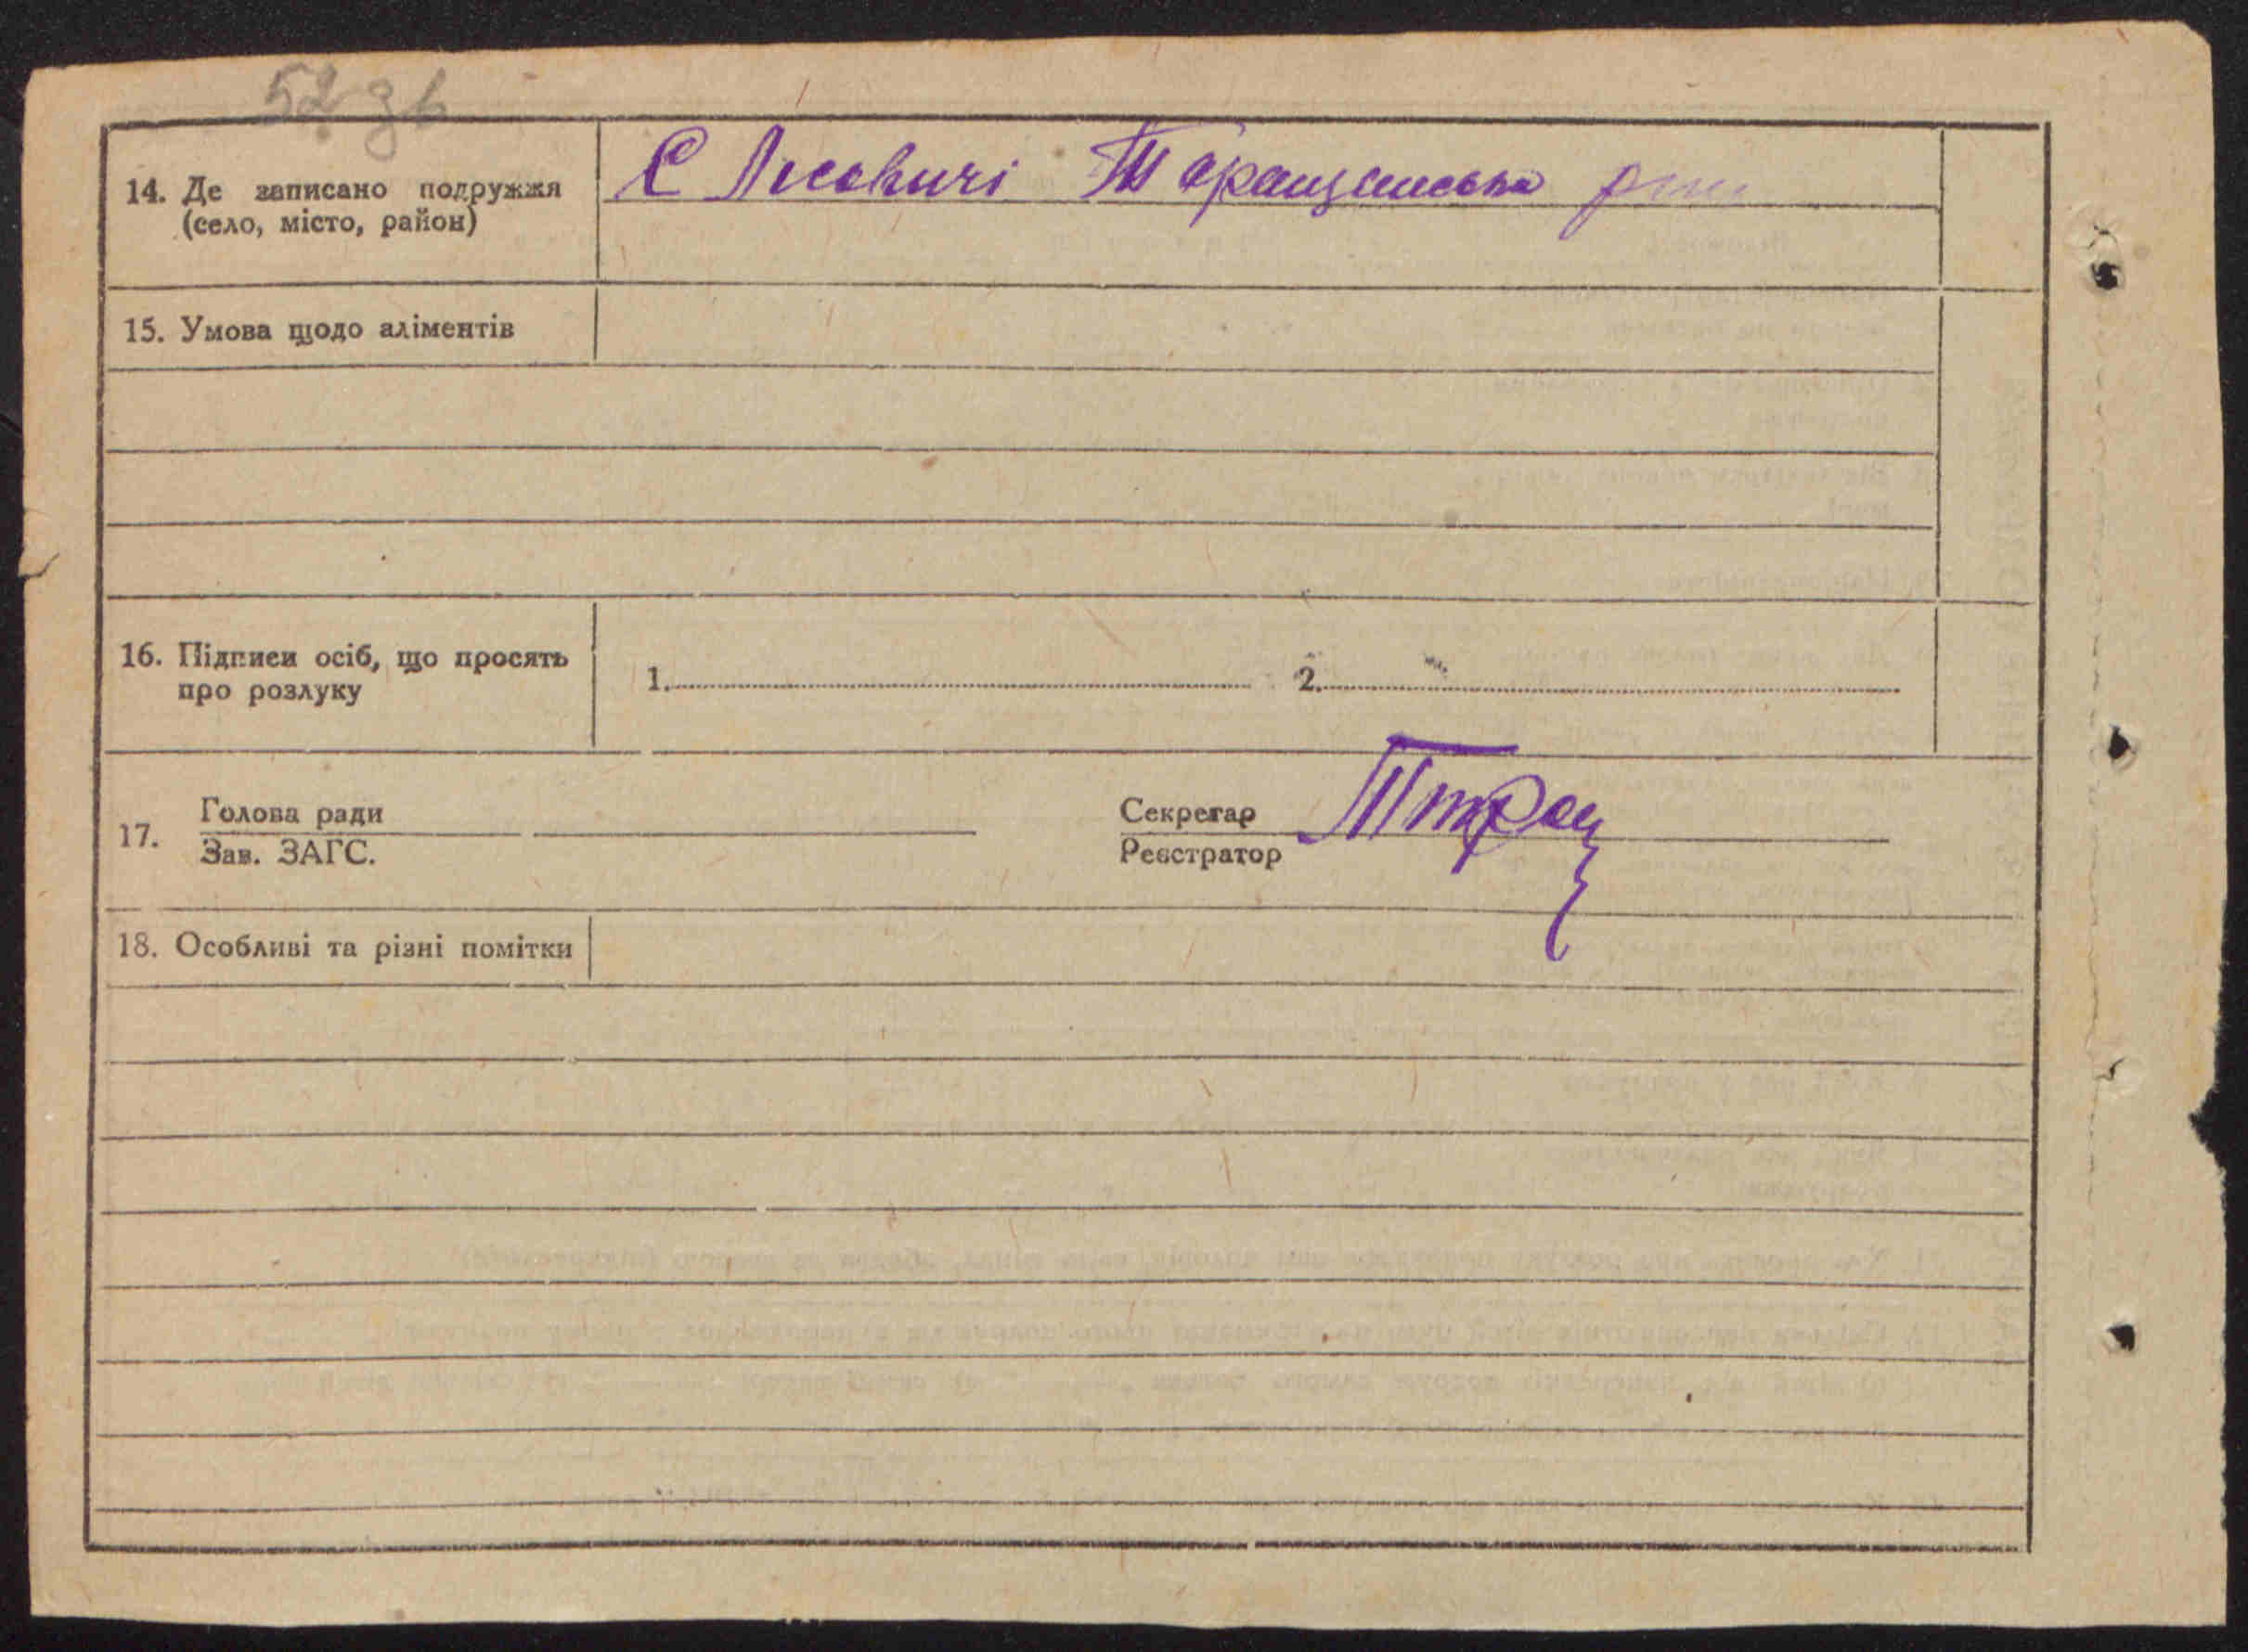 52 зв
14. Де записано подружжя С Лісовичі Таращанська
(село, місто, район)
15. Умова щодо аліментів
16. Підписи осіб, що просять
про розлуку
1. 2.
17. Голова ради
Зав. ЗАГС.
Секретар
Реєстратор
18. Особливі та різні помітки